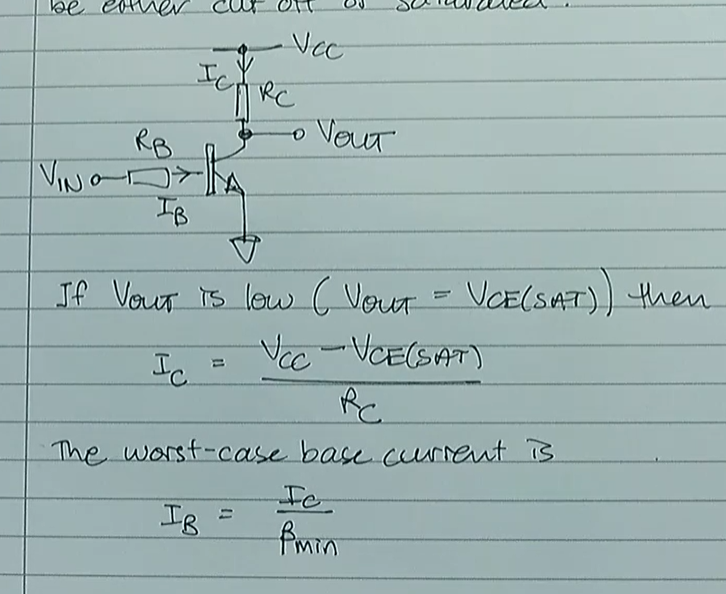 be either cut off or saturated.
VCC
IC
RC
VOUT
RB
VIN
IB
If VOUT is low (VOUT = VCE(SAT)) then
IC = VCC - VCE(SAT)
RC
The worst-case base current is
IB = IC
βmin